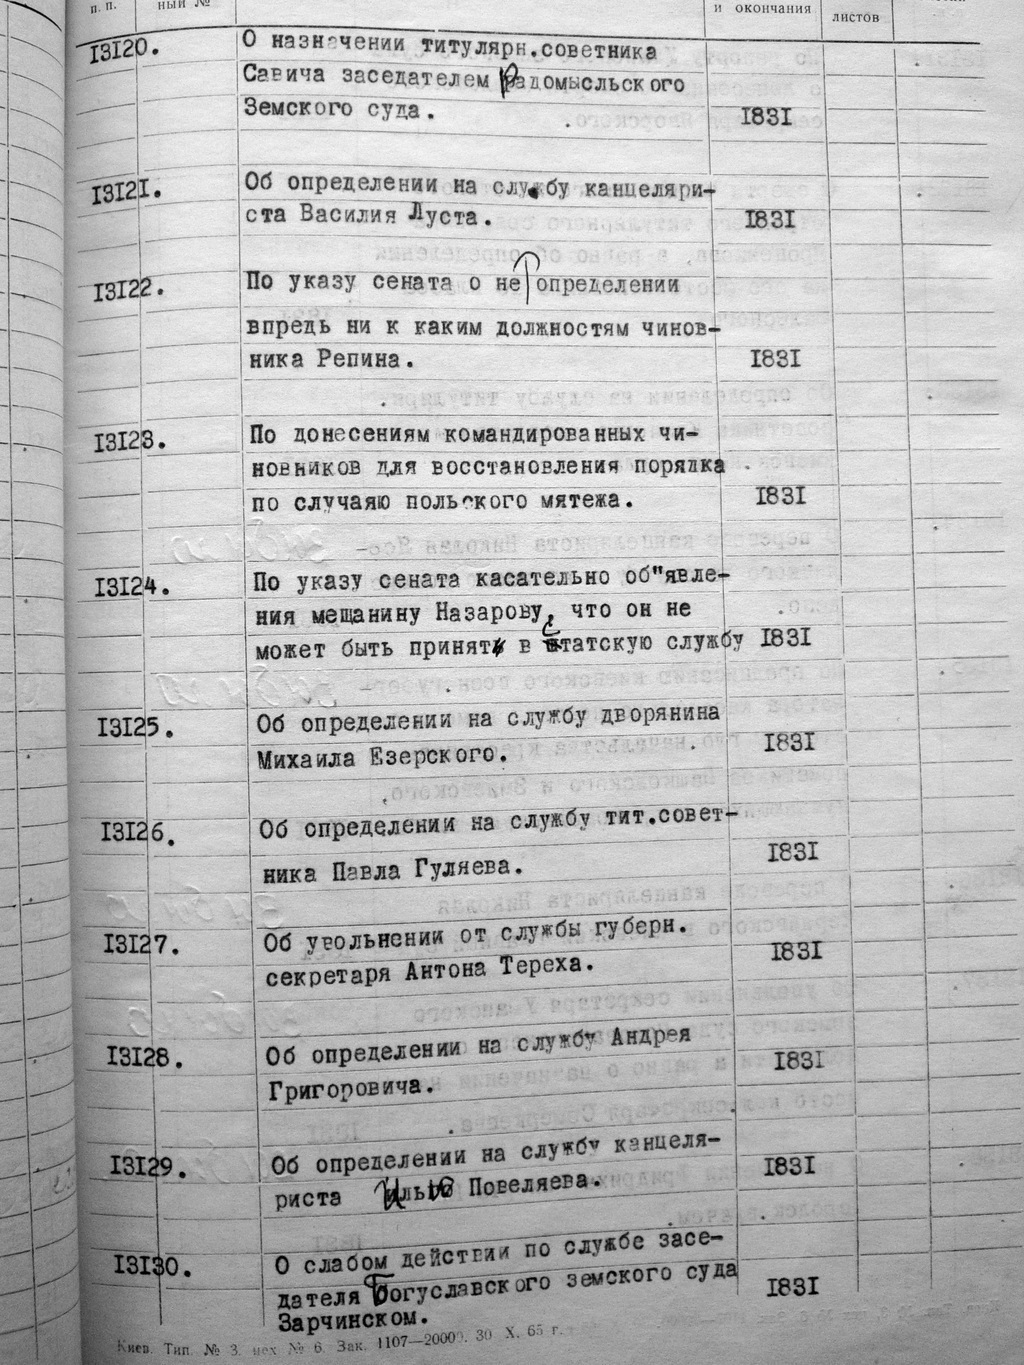 п. п.
ный №
и окончания
листов
13120. О назначении титулярн.советника
Савича заседателем Радомысльского
Земского суда. 1831
13121. Об определении на службу канцеляри-
ста Василия Луста. 1831
13122. По указу сената о не определении
впредь ни к каким должностям чинов-
ника Репина. 1831
13123. По донесениям командированных чи-
новников для восстановления порядка
по случаяю польского мятежа. 1831
13124. По указу сената касательно об"явле-
ния мещанину Назарову, что он не
может быть принят в статскую службу 1831
13125. Об определении на службу дворянина
Михаила Езерского. 1831
13126. Об определении на службу тит.совет-
ника Павла Гуляева. 1831
13127. Об увольнении от службы губерн.
секретаря Антона Тереха. 1831
13128. Об определении на службу Андрея
Григоровича. 1831
13129. Об определении на службу канцеля-
риста Повеляева. 1831
13130. О слабом действии по службе засе-
дателя Богуславского земского суда
Зарчинском. 1831
Киев. Тип. № 3. цех № 6. Зак. 1107—20000. 30 X. 65 г.